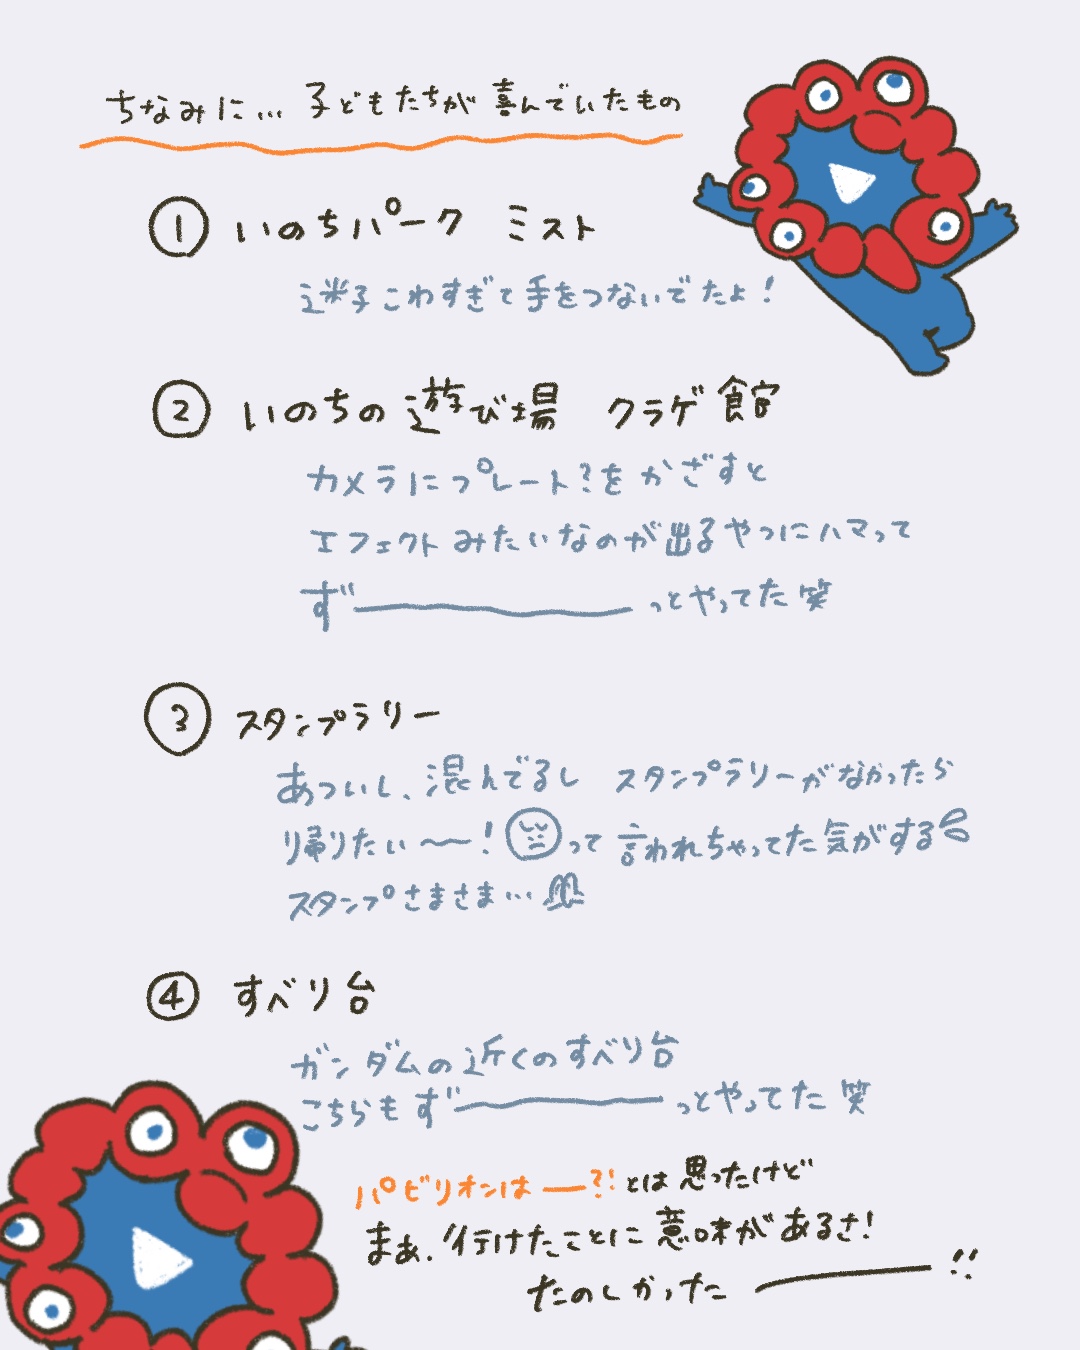 ちなみに... 子どもたちが喜んでいたもの
① いのちパーク ミスト
迷子こわすぎて手をつないでたよ!
② いのちの遊び場 クラゲ館
カメラにプレート?をかざすと
エフェクトみたいなのが出るやつにハマって
ず――っとやってた笑
③ スタンプラリー
あついし、混んでるし スタンプラリーがなかったら
帰りたい〜!って言われちゃってた気がする
スタンプさまさま...
④ すべり台
ガンダムの近くのすべり台
こちらもず――っとやってた笑
パビリオンは―?!とは思ったけど
まぁ、行けたことに意味があるさ!
たのしかった――!!